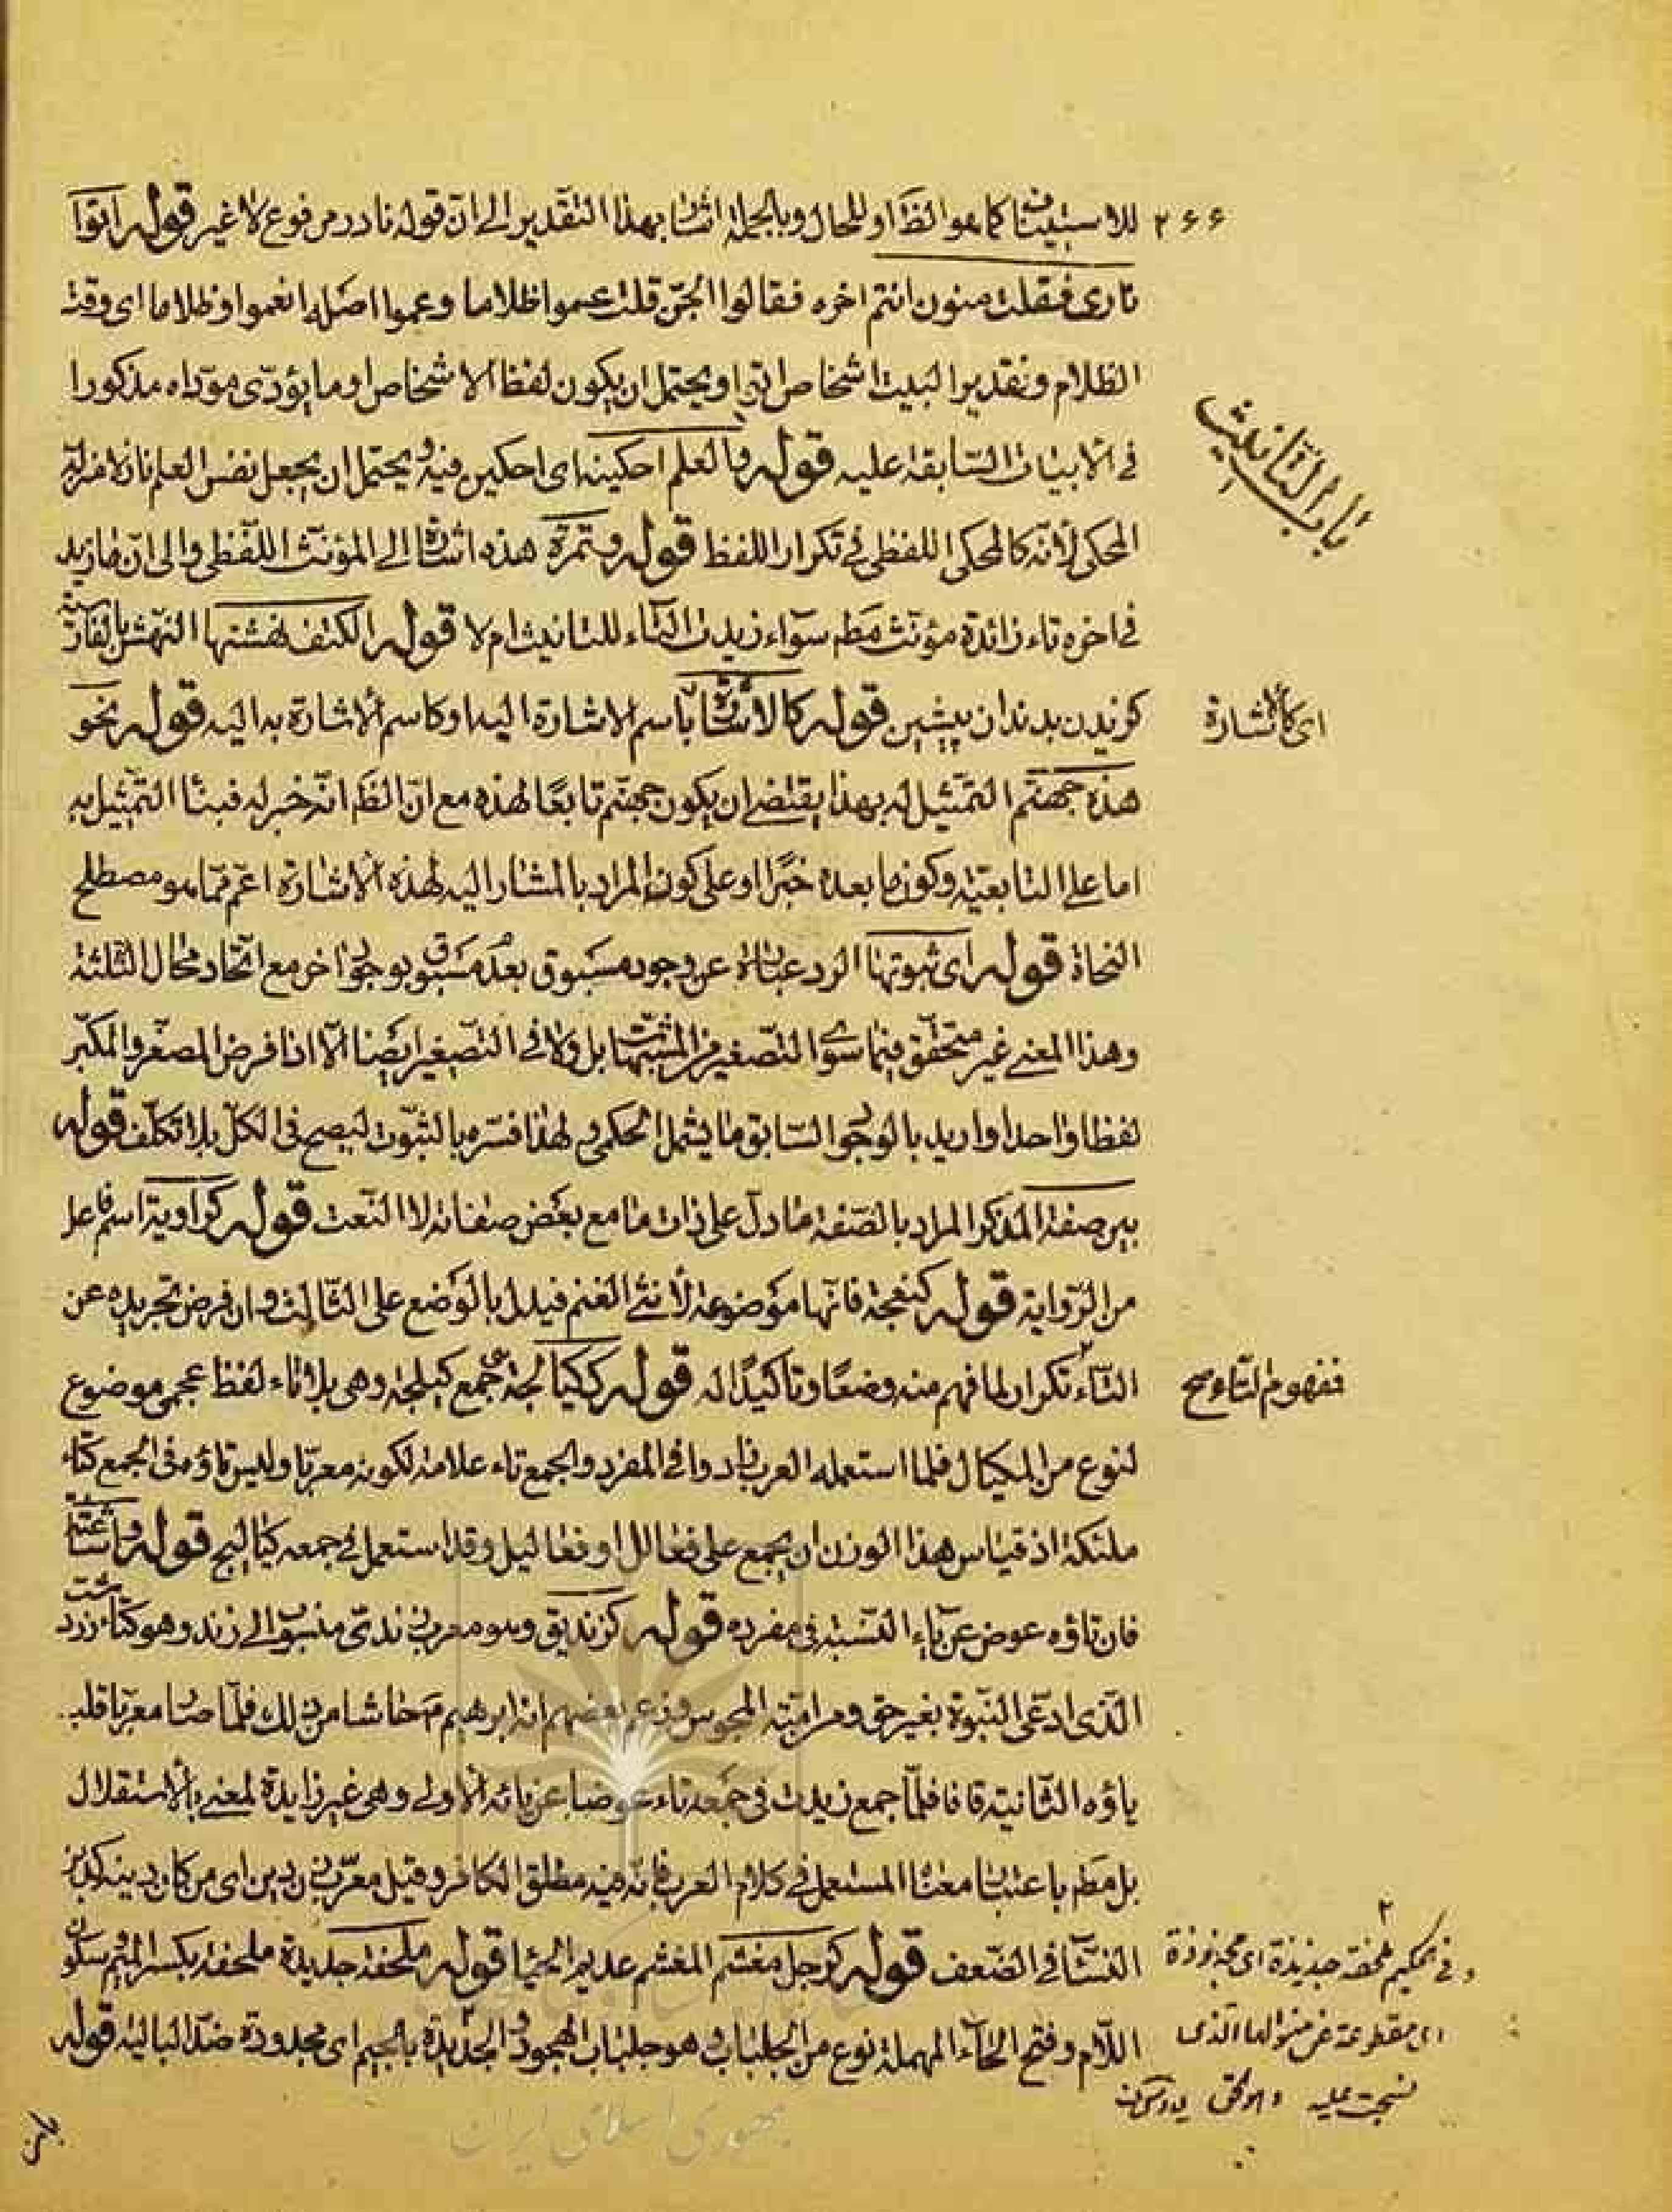 ٢٦٦
للاستيناف كما هو الظ او للحال وبالجملة اشار بهذا التقدير الى ان قوله نادر مرفوع لا غير قوله اتوا
ناری فقلت منون انتم اخره فقالوا الجن قلت عموا ظلاما وعموا اصله انعموا وظلاما ای وقت
الظلام وتقدير البيت اشخاص اتوا ويحتمل ان يكون لفظ الاشخاص او ما يؤدی مؤداه مذكورا
فی الابيات السابقة عليه قوله والعلم احكينه ای احكين فيه ويحتمل ان يجعل نفس العلم نازلا منزلة
المحكی لانه كالمحكی اللفظی فی تكرار اللفظ قوله وتمرة هذه اشارة الی المؤنث اللفظی والی ان ما زيد
فی اخره تاء زائدة مؤنث مط سواء زيدت التاء للتانيث ام لا قوله الكتف نهشتها النهش بالفارسية
گزيدن بدندان پيشين قوله كالاشارة باسم الاشارة اليه او كاسم الاشارة به اليه قوله نحو
هذه جهنم التمثيل له بهذا يقتضی ان يكون جهنم تابعا لهذه مع ان الظ انه خبر له فبنا التمثيل به
اما علی التابعية وكون ما بعده خبرا او علی كون المراد بالمشار اليه لهذه الاشارة اعم مما هو مصطلح
النحاة قوله ای ثبوتها الرد عبارة عن وجود مسبوق بعدم مسبوق بوجود اخر مع اتحاد محال الثلثة
وهذا المعنی غير متحقق فيما سوی التصغير من المثبتات بل ولا فی التصغير ايضا الا اذا فرض المصغر والمكبر
لفظا واحدا واريد بالوجود السابق ما يشمل الحكمی ولهذا فسره بالثبوت ليصح فی الكل بلا تكلف قوله
بين صفة المذكر المراد بالصفة ما دل علی ذات ما مع بعض صفاته لا النعت قوله كراوية اسم فاعل
من الرواية قوله كنعجة فانها موضوعة لانثی الغنم فيدل بالوضع علی الثالث وان فرض تجريده عن
التاء تكرار لما فهم منه وضعا وتاكيدا له قوله ككيالجة جمع كيلجة وهی بلا تاء لفظ عجمی موضوع
لنوع من المكيال فلما استعمله العرب زادوا فی المفرد والجمع تاء علامة لكونه معربا وليس تاؤه فی الجمع كتاء
ملئكة اذ قياس هذا الوزن ان يجمع علی فعالل او فعاليل وقد استعمل فی جمعه كيالج قوله واشاعثة
فان تاؤه عوض عن ياء النسبة فی مفرده قوله كزنديق وهو معرب زندی منسوب الی زند وهو كتاب زردشت
الذی ادعی النبوة بغير حق ومرامته المجوس وزعم بعضهم انه ابرهيم حاشا من ذلك فلما صار معربا قلب
ياؤه الثانية قافا فلما جمع زيدت فی جمعه تاء عوضا عن يائه الاولی وهی غير زايدة لمعنی بالاستقلال
بل مط باعتبار معناه المستعمل فی كلام العرب فانه فيه مطلق الكافر وقيل معرب زن دين ای من كان دينه كدين
النساء فی الضعف قوله كرجل مغشم المغشم عديم الحيا قوله ملحفة جديدة ملحفة بكسر الميم وسكون
اللام وفتح الحاء المهملة نوع من الجلباب وهو جلباب الهجود والجديدة بالجيم ای مجدودة ضد البالية قوله
باب التانيث
ای كالاشارة
فمفهوم التاء صح
ای مقطوعة عن منوالها الذی
نسجت عليه